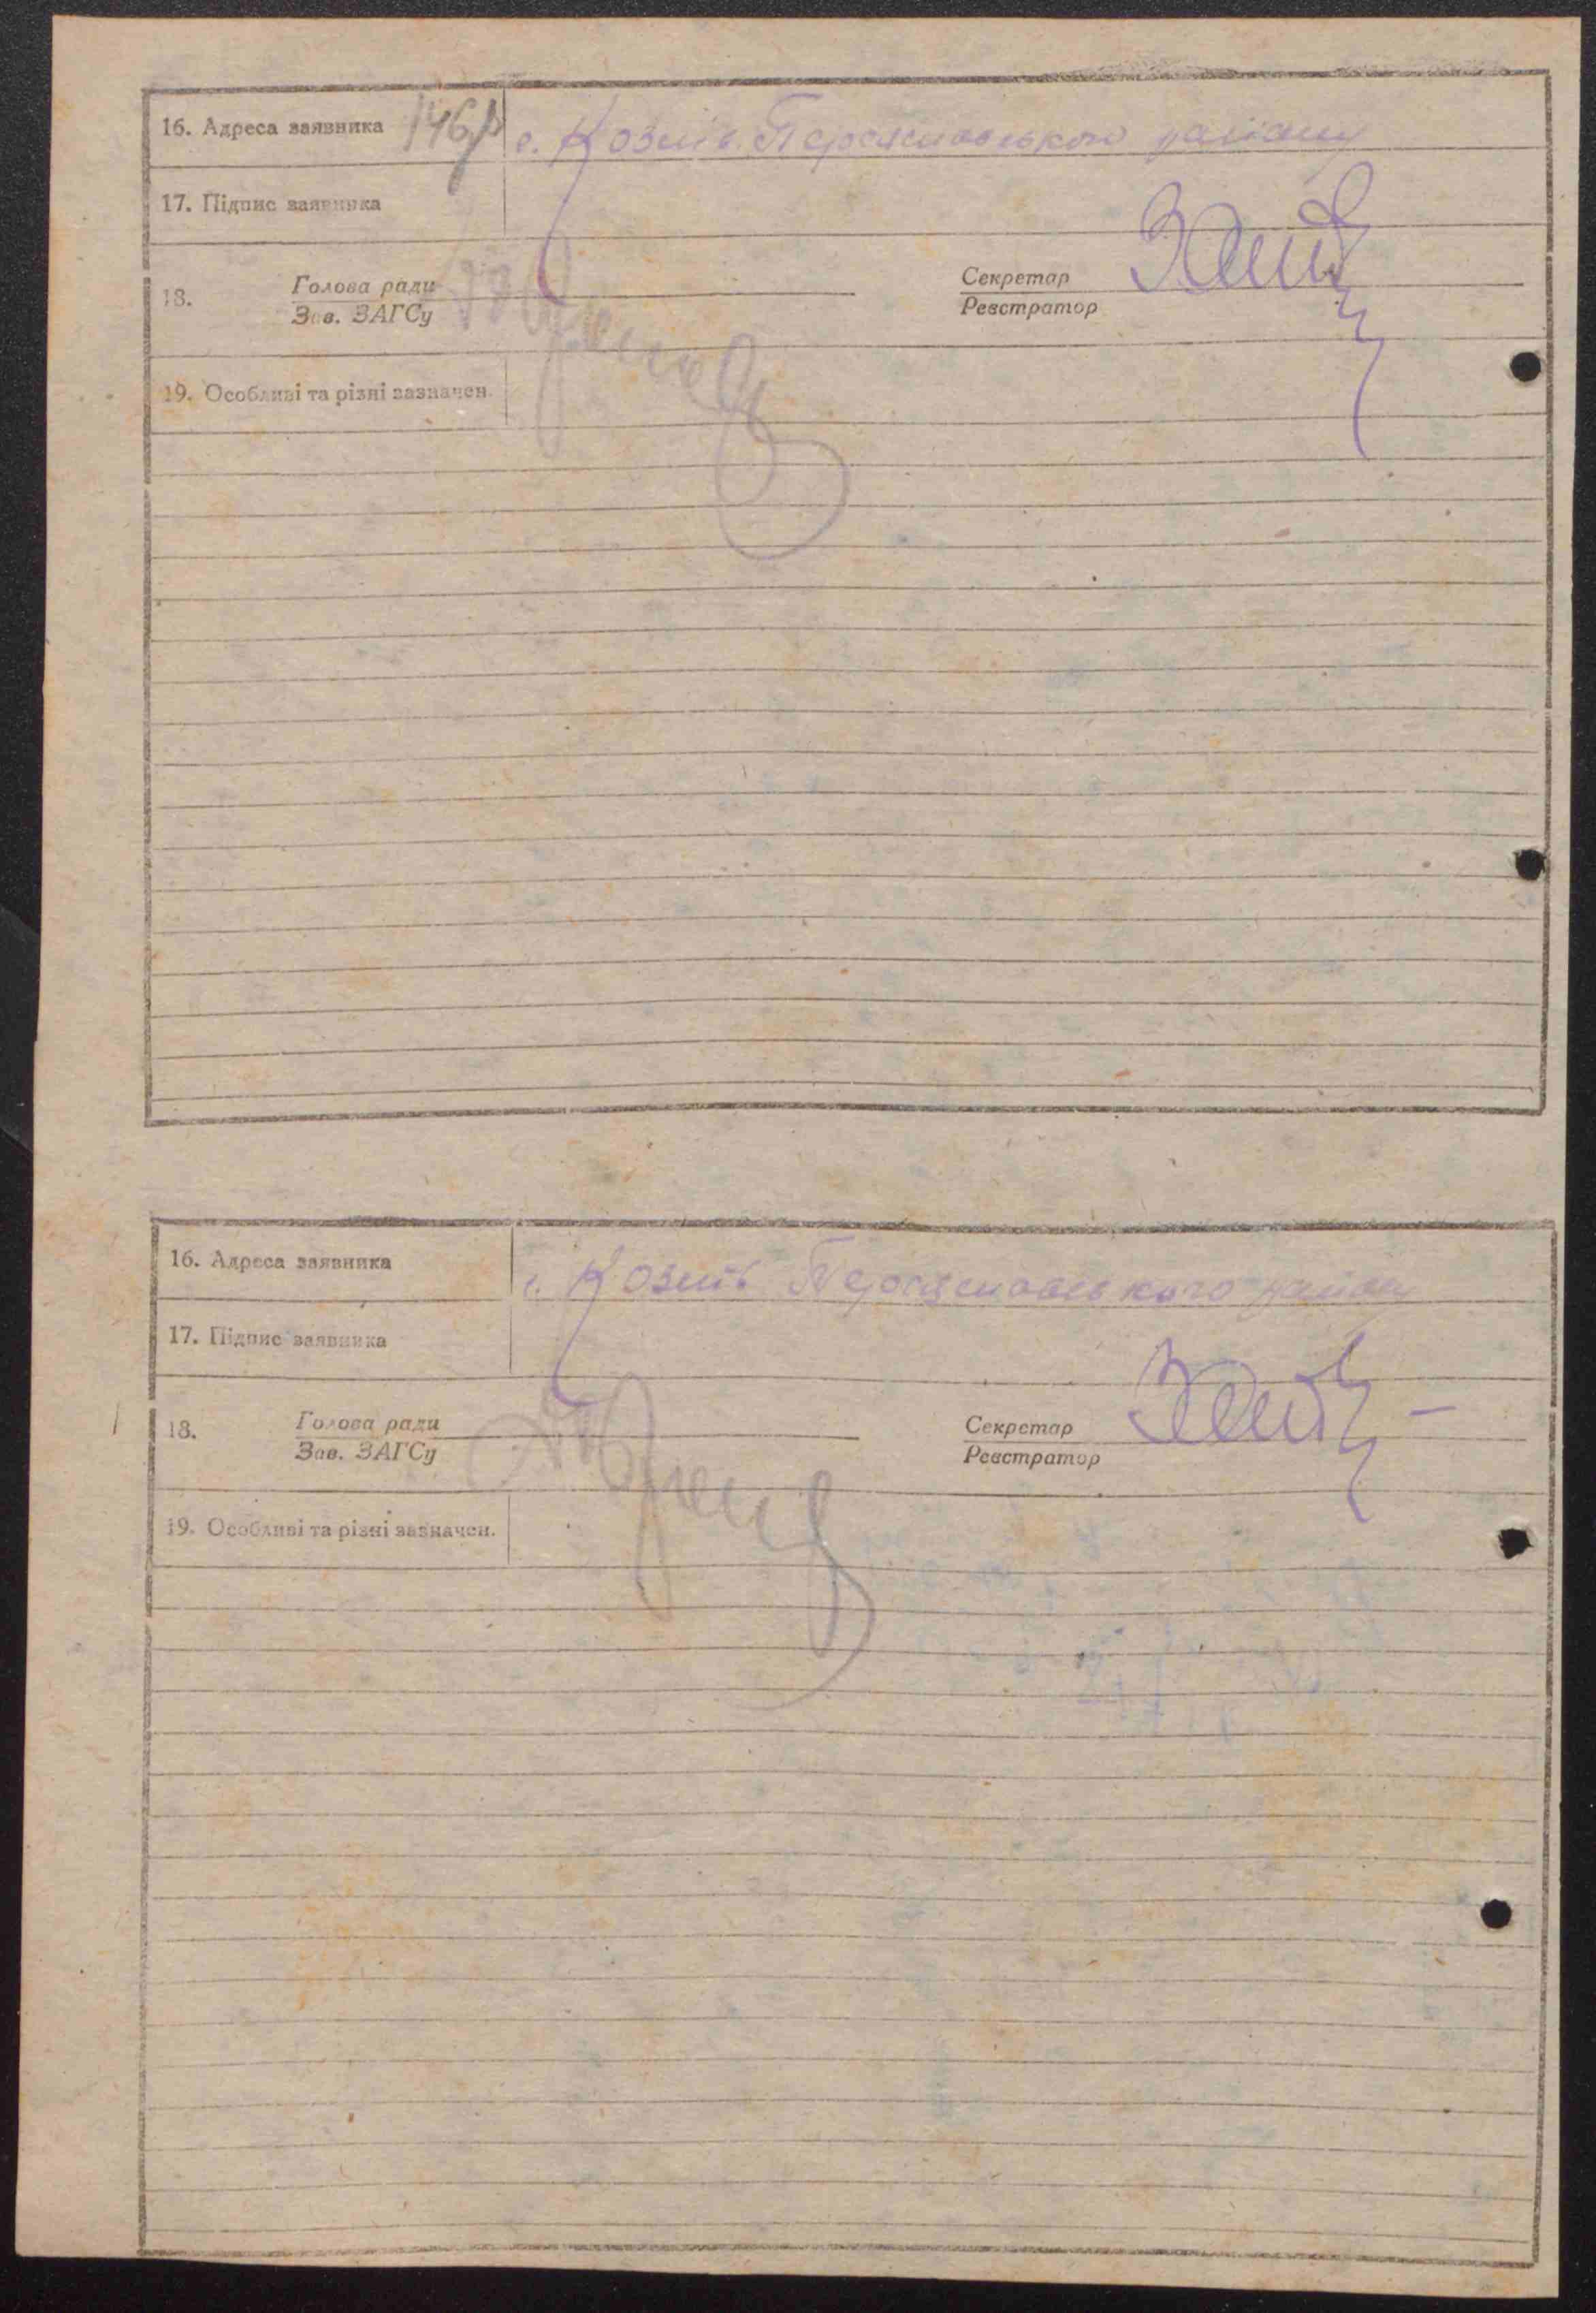 16. Адреса заявника 146 с. Козин Переяславського району
17. Підпис заявника
18. Голова ради Секретар
Зав. ЗАГСу Реєстратор
19. Особливі та різні зазначен.
16. Адреса заявника с. Козин Переяславського району
17. Підпис заявника
18. Голова ради Секретар
Зав. ЗАГСу Реєстратор
19. Особливі та різні зазначен.